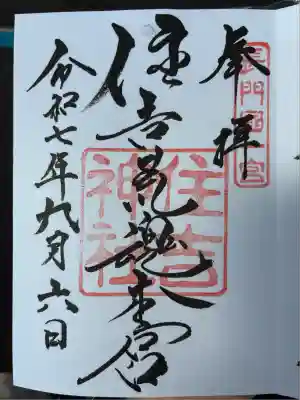 長門國一宮
奉拝
住吉荒魂本宮
住吉神社
令和七年九月六日